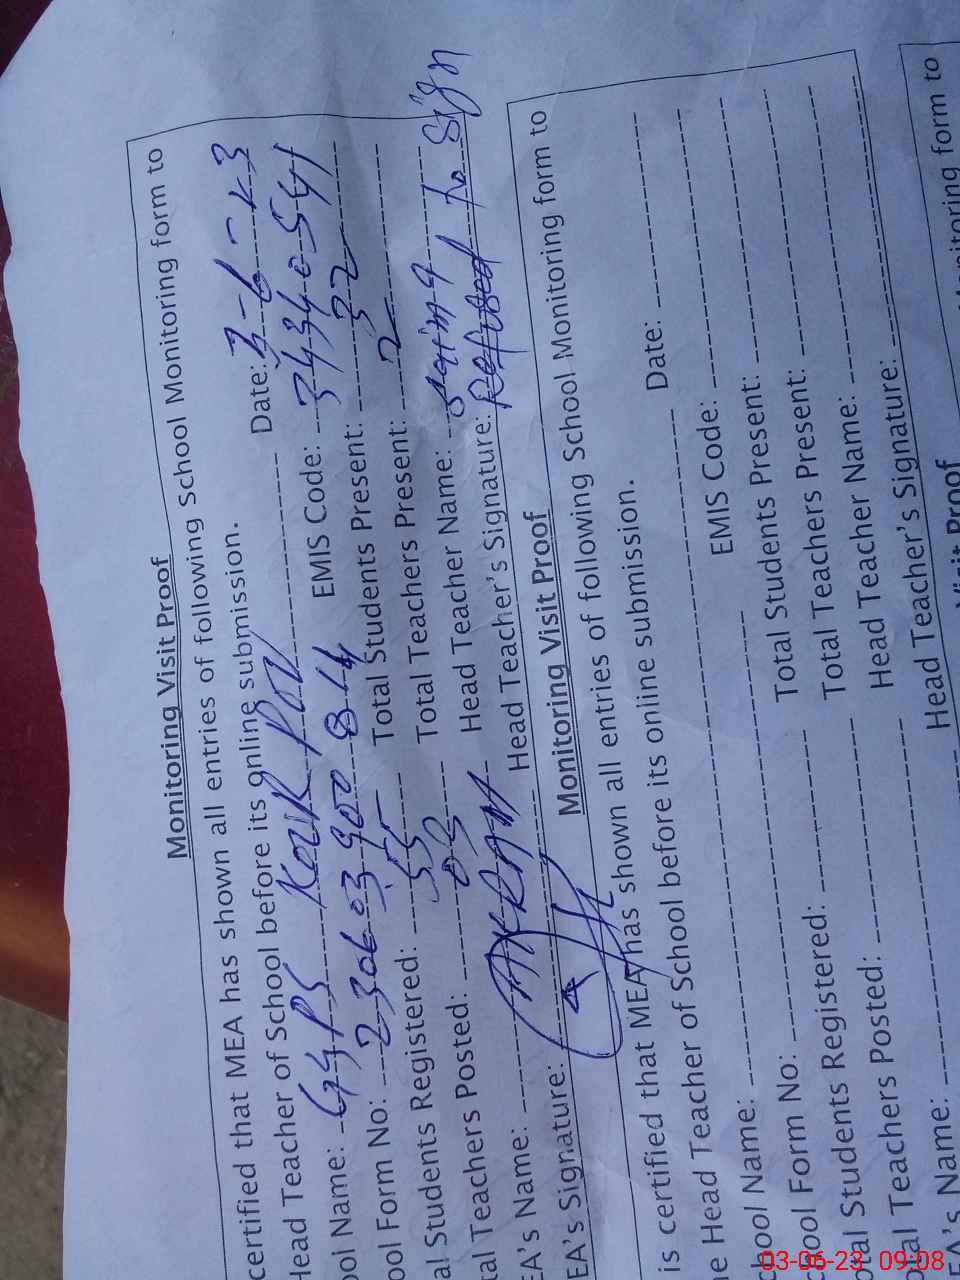 Monitoring Visit Proof
certified that MEA has shown all entries of following School Monitoring form to
Head Teacher of School before its online submission. Date: 3-6-23
ool Name: GGPS EMIS Code: 34340541
ool Form No: 2306 03 900 814 Total Students Present: 32
al Students Registered: 55 Total Teachers Present: 2
tal Teachers Posted: 03 Head Teacher Name: Saima
EA's Name: AKRAM Head Teacher's Signature: Refused to Sign
EA's Signature:
Monitoring Visit Proof
is certified that MEA has shown all entries of following School Monitoring form to
e Head Teacher of School before its online submission. Date:
chool Name: EMIS Code:
chool Form No: Total Students Present:
otal Students Registered: Total Teachers Present:
otal Teachers Posted: Head Teacher Name:
EA's Name: Head Teacher's Signature:
Visit Proof
Monitoring form to
03-06-23 09:08